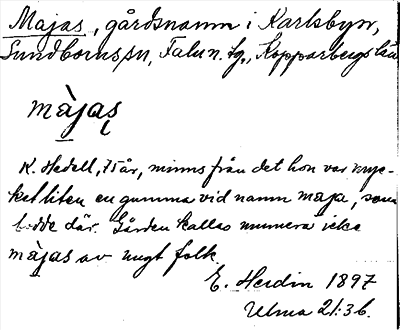 Majas, gårdsnamn i Karlsbyn,
Sundborns sn, Falu n. tg., Kopparbergs län
màjas
K. Hedell, 75 år, minns från det hon var myc-
ket liten en gumma vid namn maja, som
bodde där. Gården kallas numera icke
màjas av ungt folk.
E. Herdin 1897
Ulma 21:36.